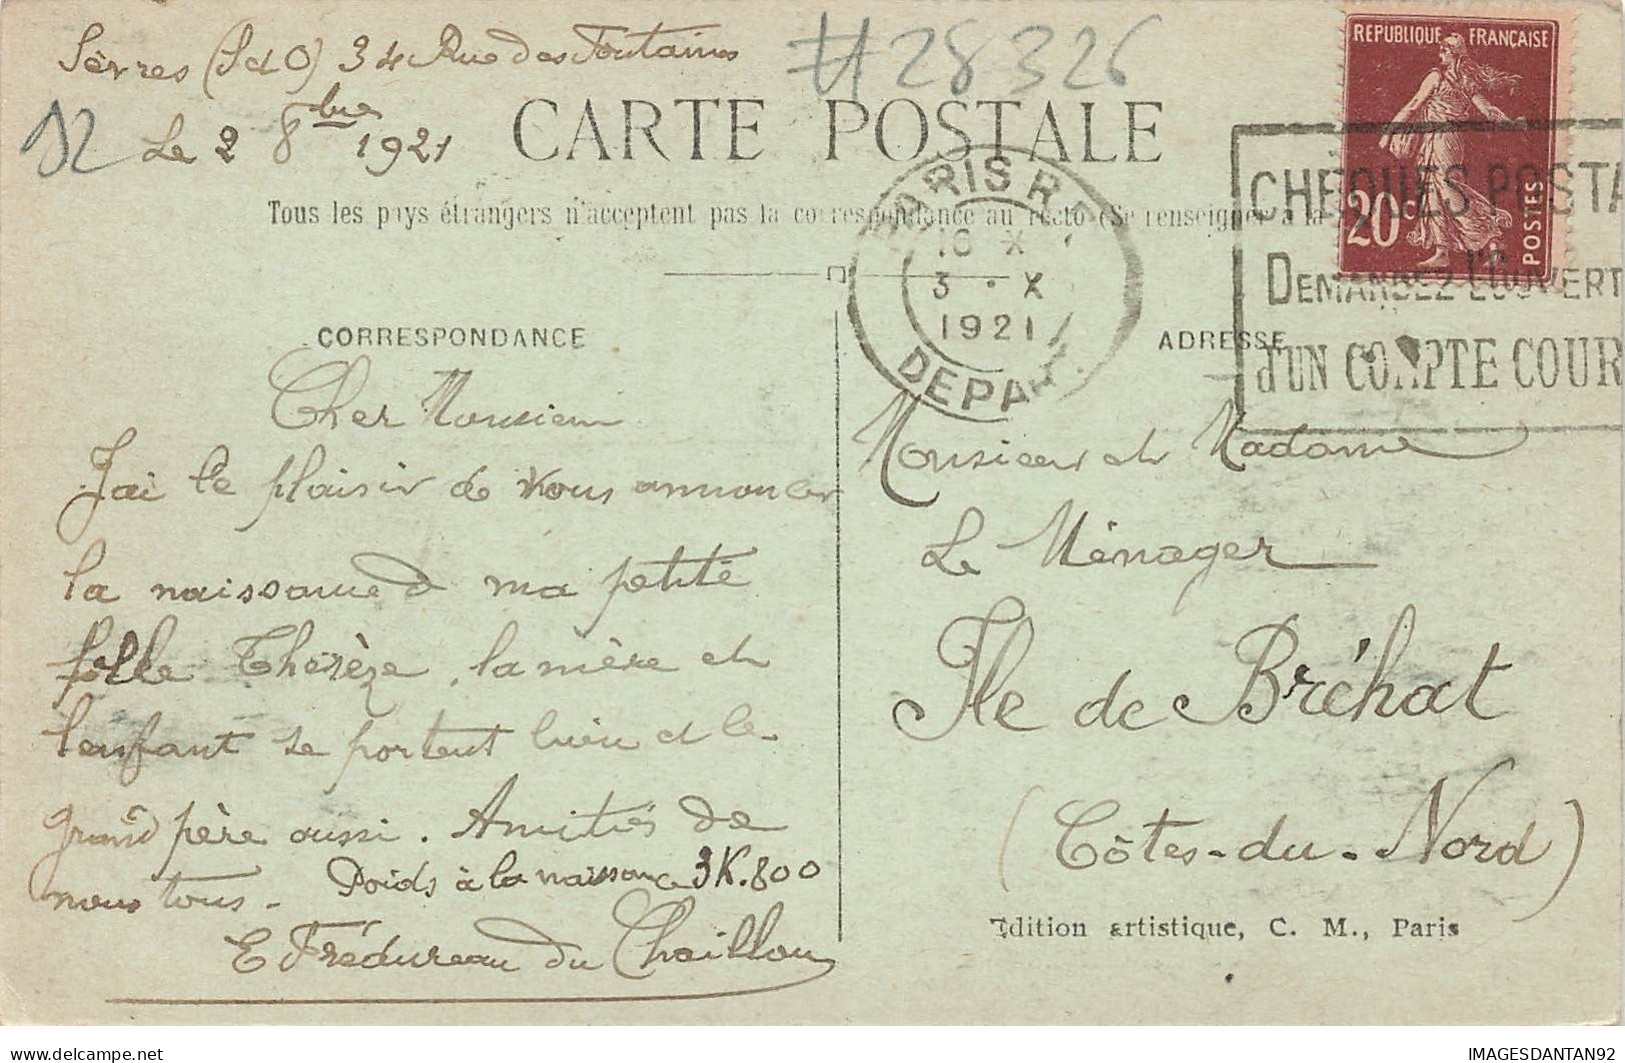 Sèvres (S et O) 34 Rue des Fontaines
#28326
Le 2 8bre 1921
CARTE POSTALE
Tous les pays étrangers n'acceptent pas la correspondance au recto (Se renseigner à la
REPUBLIQUE FRANÇAISE
20c
POSTES
PARIS R.P.
3 · X
1921
DEPART
CHÈQUES POSTA
DEMANDEZ L'OUVERT
d'UN COMPTE COUR
CORRESPONDANCE
Cher Monsieur
J'ai le plaisir de vous annoncer
la naissance de ma petite
fille Therèze, la mère et
l'enfant se portent bien et le
grand père aussi. Amitiés de
nous tous. Poids à la naissance 3K.800
E Frédureau du Chaillou
ADRESSE
Monsieur et Madame
Le Ménager
Île de Bréhat
(Côtes-du-Nord)
Edition artistique, C. M., Paris
delcampe.net
IMAGESDANTAN92